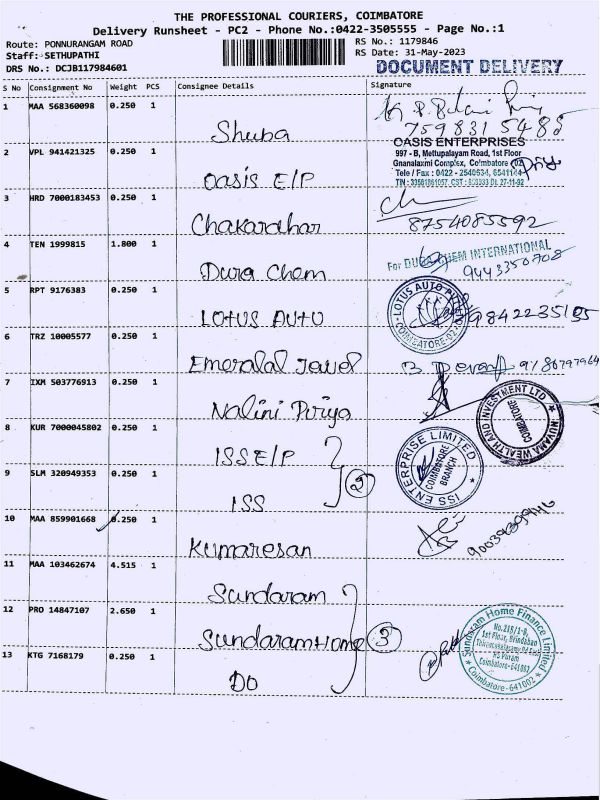 THE PROFESSIONAL COURIERS, COIMBATORE
Delivery Runsheet - PC2 - Phone No.:0422-3505555 - Page No.:1
Route: PONNURANGAM ROAD
RS No.: 1179846
Staff: SETHUPATHI
RS Date: 31-May-2023
DRS No.: DCJB117984601
DOCUMENT DELIVERY
S No Consignment No Weight PCS Consignee Details Signature
1 MAA 568360098 0.250 1
Shuba
759831 5488
2 VPL 941421325 0.250 1
Oasis E/P
OASIS ENTERPRISES
997 - B, Mettupalayam Road, 1st Floor
Gnanalaxmi Complex, Coimbatore
Tele / Fax : 0422 - 2540634, 6541144
Priya
3 HRD 7000183453 0.250 1
Chakaradhar
8754085592
4 TEN 1999815 1.800 1
Dura Chem
For DURA CHEM INTERNATIONAL
9443350708
5 RPT 9176383 0.250 1
LOTUS AUTO
LOTUS AUTO
COIMBATORE
9842235195
6 TRZ 10005577 0.250 1
Emeralal Jewel
7 IXM 503776913 0.250 1
Nalini Piriya
NUVAMA WEALTH AND INVESTMENT LTD
COIMBATORE
8 KUR 7000045802 0.250 1
ISS E/P
ISS ENTERPRISE LIMITED
COIMBATORE
BRANCH
9 SLM 320949353 0.250 1
ISS
2
10 MAA 859901668 0.250 1
Kumaresan
11 MAA 103462674 4.515 1
Sundaram
12 PRO 14847107 2.650 1
Sundaram Home
3
Sundaram Home Finance Limited
1st Floor, Brindaban
RS Puram
Coimbatore-641002
Coimbatore - 641002
13 KTG 7168179 0.250 1
DO